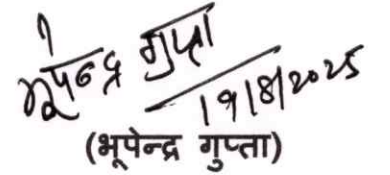 भूपेन्द्र गुप्ता
19/8/2025
(भूपेन्द्र गुप्ता)